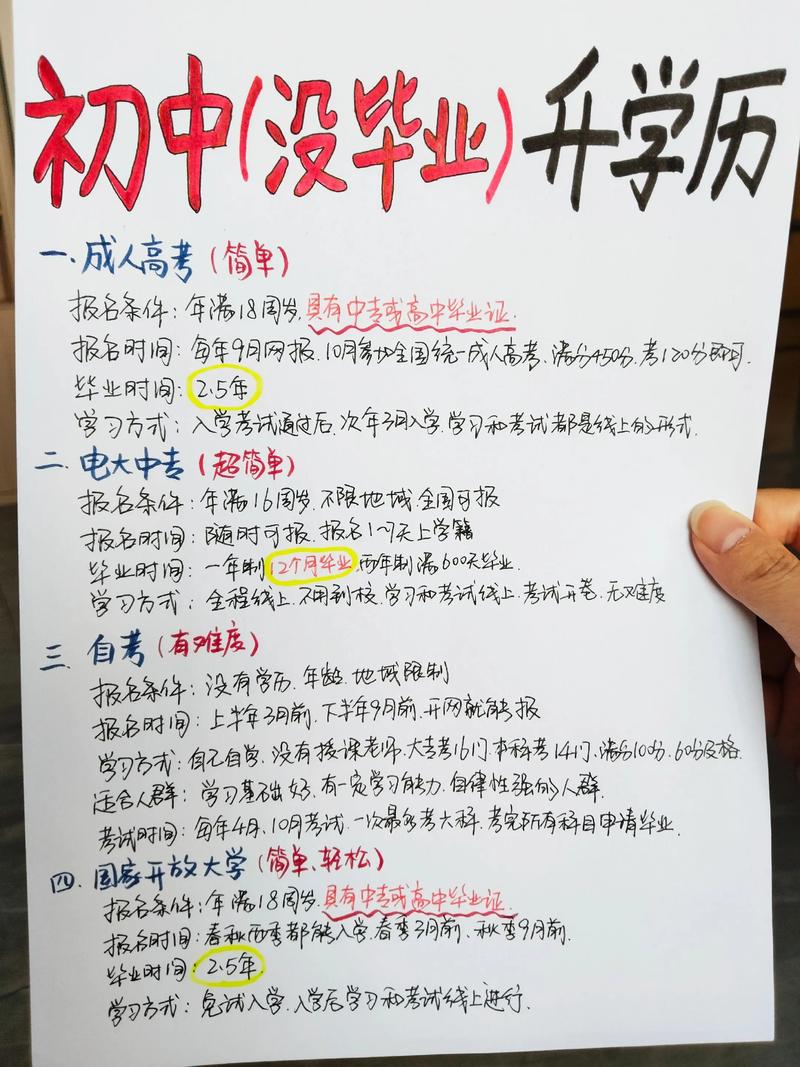 初中(没毕业)升学历
一.成人高考(简单)
报名条件:年满18周岁.具有中专或高中毕业证.
报名时间:每年9月网报.10月参加全国统一成人高考.满分450分.考120分即可.
毕业时间:2.5年
学习方式:入学考试通过后.次年3月入学.学习和考试都是线上的形式.
二.电大中专(超简单)
报名条件:年满16周岁.不限地域.全国可报
报名时间:随时可报.报名1-7天上学籍
毕业时间:一年制12个月毕业.两年制满600天毕业.
学习方式:全程线上.不用到校.学习和考试线上.考试开卷.无难度
三.自考(有难度)
报名条件:没有学历.年龄.地域限制
报名时间:上半年3月前.下半年9月前.开网就能报
学习方式:自己自学.没有授课老师.大专考16门.本科考14门.满分100分.60分及格.
适合人群:学习基础好.有一定学习能力.自律性强的人群.
考试时间:每年4月.10月考试.一次最多考六科.考完所有科目申请毕业.
四.国家开放大学(简单.轻松)
报名条件:年满18周岁.具有中专或高中毕业证.
报名时间:春秋两季都能入学.春季3月前.秋季9月前.
毕业时间:2.5年.
学习方式:免试入学.入学后学习和考试线上进行.